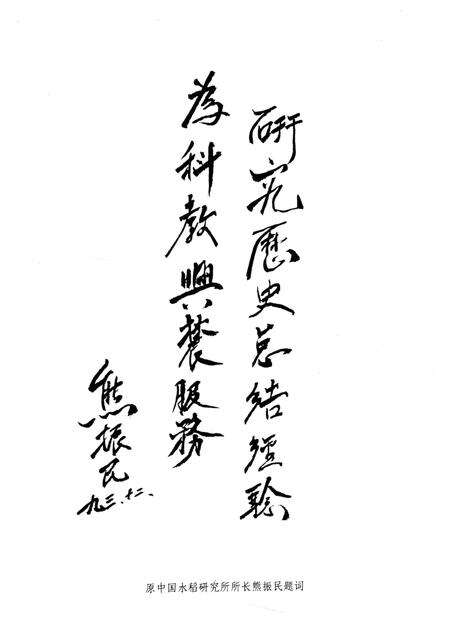 研究歷史总结經驗
為科教興農服務
熊振民
九三.十二.
原中国水稻研究所所长熊振民题词